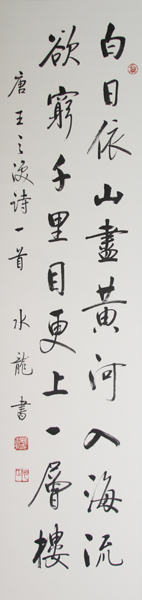 白日依山盡黃河入海流
欲窮千里目更上一層樓
唐王之渙詩一首 水龍書